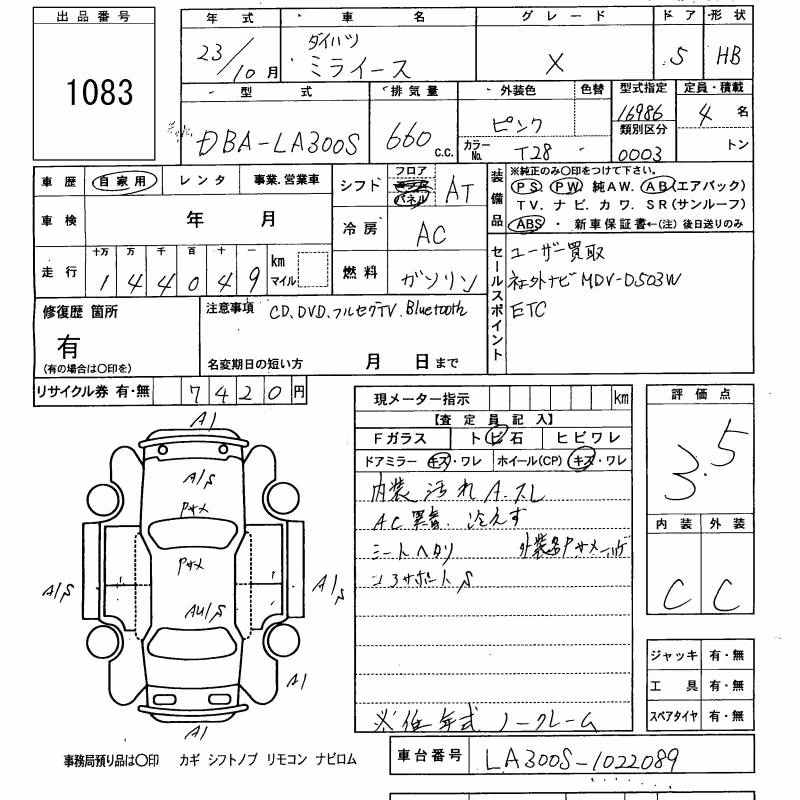 出品番号
1083
年式 車名 グレード ドア 形状
23/10月 ダイハツ ミライース X 5 HB
型式 排気量 外装色 色替 型式指定 定員・積載
DBA-LA300S 660 C.C. ピンク 16986 4名
カラーNo. T28 類別区分 0003 トン
車歴 自家用 レンタ 事業.営業車
車検 年 月
走行 十万 万 千 百 十 一
1 4 4 0 4 9 km マイル
シフト フロア パネル AT
冷房 AC
燃料 ガソリン
装備品 ※純正のみ〇印をつけて下さい。
PS PW 純AW. AB(エアバック)
TV. ナビ. カワ. SR(サンルーフ)
ABS ・ 新車保証書←(注) 後日送りのみ
セールスポイント
ユーザー買取
社外ナビ MDV-D503W
ETC
修復歴 箇所
有
(有の場合は〇印を)
注意事項 CD、DVD、フルセグTV、Bluetooth
名変期日の短い方 月 日まで
リサイクル券 有・無 7420円
現メーター指示 km
【査定員記入】
Fガラス トビ石 ヒビワレ
ドアミラー キズ・ワレ ホイール(CP) キズ・ワレ
内装 汚れ A.スレ
AC 異音. 冷えず
シートヘタリ
コアサポートS
※低年式 ノークレーム
評価点
3.5
内装 外装
C C
ジャッキ 有・無
工具 有・無
スペアタイヤ 有・無
A1
A1/S
Pサメ
Pサメ
A1/S
A1/S
AU1/S
A1
A1
事務局預り品は〇印 カギ シフトノブ リモコン ナビロム
車台番号 LA300S-1022089